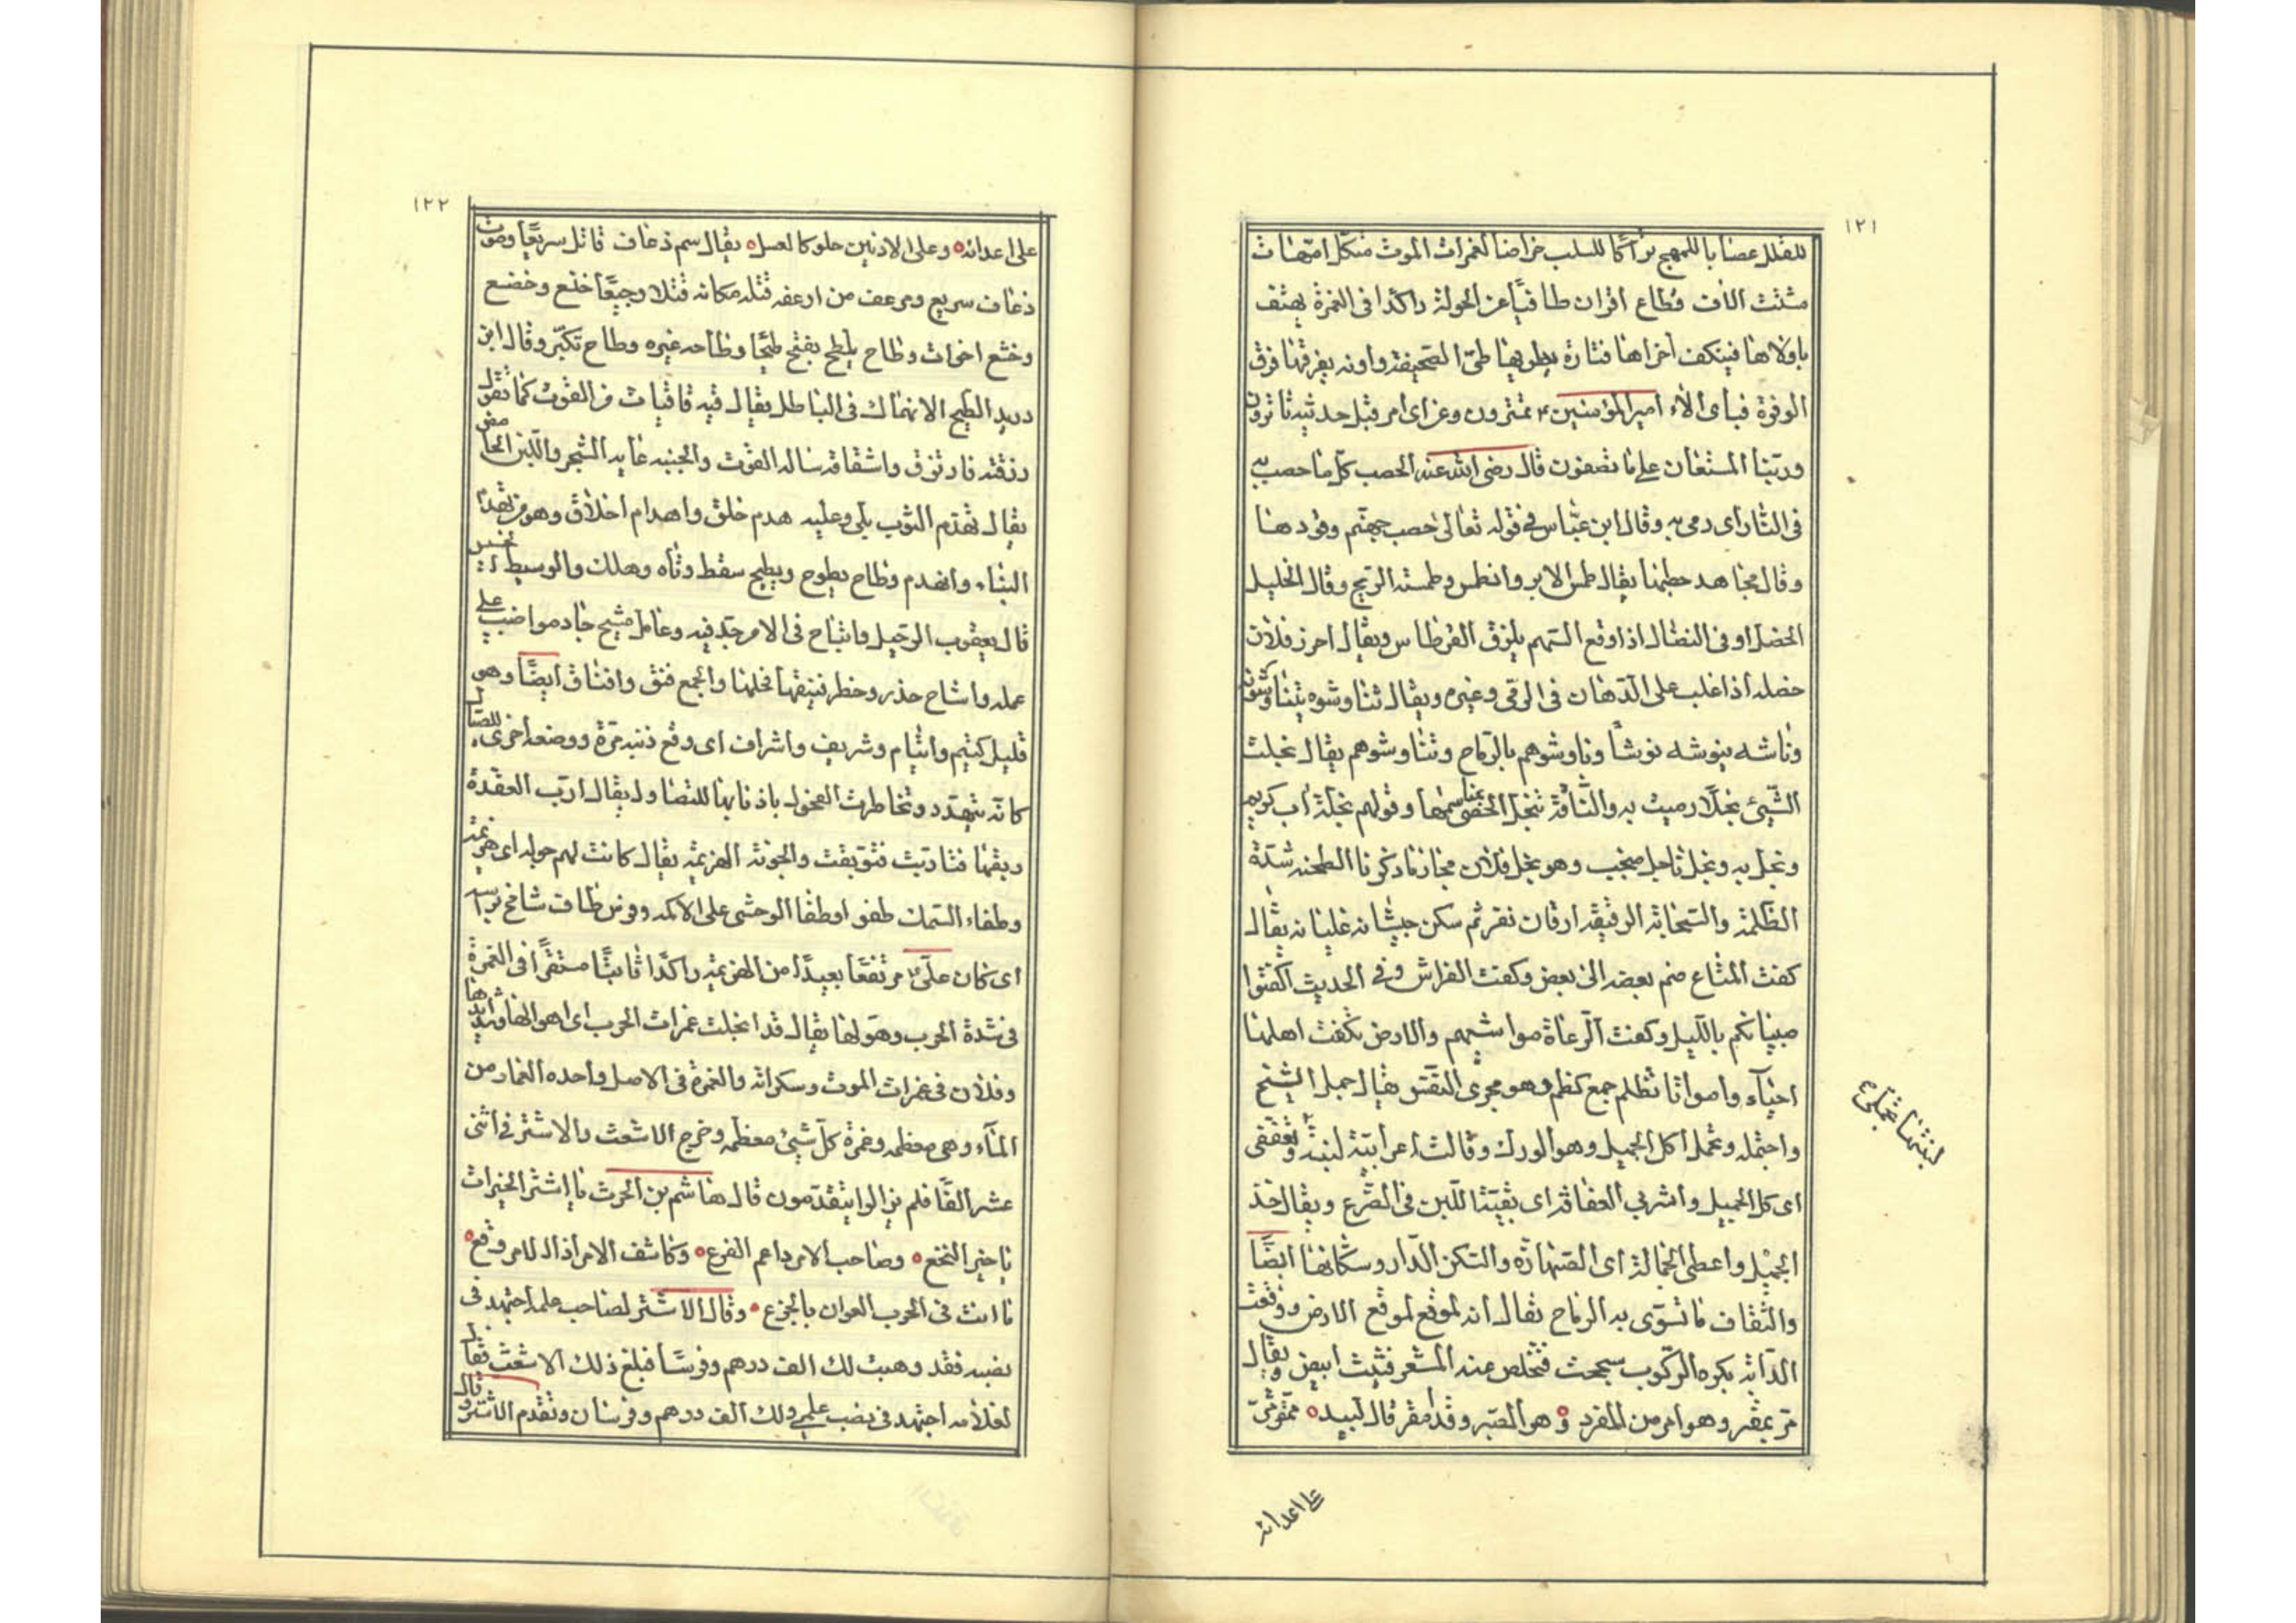 ١٢١
للقلل عضابا للمهج تراكا للسلب خواضا لغمرات الموت مثكل امهات
مشتت الاف قطاع اقران طافيا عن الجولة راكدا فى الغمرة يهتف
باولاها فينكف اخراها فتارة يطويها طى الصحيفة واونه يفرقها فرق
الوفرة فباى الاء امير المؤمنين تمترون وعن اى امر مثل حديثه تاثرون
وربنا المستعان على ما تصفون قال رضى الله عنه الحصب كل ما حصب به
فى النار اى رمى به وقال ابن عباس فى قوله تعالى حصب جهنم وقودها
وقال مجاهد حطبها يقال طمس الاثر وانطمس وطمسته الريح وقال الخليل
الخصل و فى النضال اذا وقع السهم بلزق القرطاس ويقال احرز فلان
خصله اذا غلب على الرهان فى الرمى وغيره ويقال تناوشوه يتناوشونه
وناشه ينوشه نوشا وناوشوهم بالرماح وتناوشوهم يقال نجلت
الشئ نجلا رميت به والناقة تنجل الحصى بمناسمها وقولهم نجله اب كريم
ونجل به ونجل ناجل منجب وهو نجل فلان مجاز ما ذكرنا الطخية شدة
الظلمة والسحابة الرقيقة ارفان نفر ثم سكن جيشانه غليانه يقال
كفت المتاع ضم بعضه الى بعض وكفت الفراش وفى الحديث اكفتوا
صبيانكم بالليل وكفت الرعاة مواشيهم والارض تكفت اهلها
احياء وامواتا تظلم جمع كظم وهو مجرى النفس يقال جمل الشيخ
واجتمله وتجمل اكل الجميل وهو الورك وقالت اعرابية لبنتها تجملى وتعففى
اى كل الجميل واشربى العفافة اى بقية اللبن فى الضرع ويقال خذ
الجميل واعطى الجمالة اى الصهارة والسكن الدار وسكانها ايضا
والثقاف ما تسوى به الرماح يقال انه لموقع لموقع الارض ووقعت
الدابة بكره الركوب سحجت فتخلص عنه الشعر فنبت ابيض ويقال
مر يمقر وهو امر من المقر وهو الصبر وقد امقر قال لبيد ممقر مر
على اعدائه
١٢٢
على اعدائه وعلى الادنين حلو كالعسل يقال سم ذعاف قاتل سريعا وموت
ذعاف سريع ومرعف من ارعفه قتله مكانه قتلا وجيعا خنع وخضع
وخشع اخوات وطاح يطيح بفتح طيحا وطاحه غيره وطاح تكبر وقال ابن
دريد الطيح الانهماك فى الباطل يقال قيه قاقيات من القوت كما تقول
رزقته فارتزق واستقاته ساله القوت والجنبه عاية الشجر واللبن الحامض
يقال تهدم الثوب بلى وعليه هدم خلق واهدام اخلاق وهو من تهدم
البناء وانهدم وطاح يطوح ويطيح سقط وتاه وهلك والوسيط
قال يعقوب الرجل وانشاح فى الامر جد فيه وعامل مشيح جاد مواضب على
عمله واشاح حذر وخطر فنيقها فحلها والجمع فنق وافناق ايضا وهو
قليل كيتيم وايتام وشريف واشراف اى رفع ذنبه مرة ووضعه اخرى للصيال
كانه يتهدد وتخاطرت الفحول باذنابها للتصاول يقال ارب العقدة
وطفاء السمك طفو او طفا الوحشى على الاكمه وفرس طاف شامخ براسه
اى كان على مرتفعا بعيدا من الهزيمة راكدا ثابتا مستقرا فى الغمرة
فى شدة الحرب وهولها يقال قد انجلت غمرات الحرب اى اهوالها وشدايدها
وفلان فى غمرات الموت وسكراته والغمرة فى الاصل واحده الغمار من
الماء وهى معظمه وغمرة كل شئ معظمه وخرج الاشعث والاشتر فى اثنى
عشر الفا فلم يزالوا يتقدمون قال هاشم بن الحرث يا اشتر الخيرات
يا خير النخع وصاحب الامر داعم الفزع وكاشف الامر اذا الامر وقع
ما انت فى الحرب العوان بالجزع وقال الاشتر لصاحب علمه اجتهد فى
نصبه فقد وهبت لك الف درهم وفرسا فبلغ ذلك الاشعث فقال
لغلامه اجتهد فى نصب علمى ولك الف درهم وفرسان وتقدم الاشتر وقال